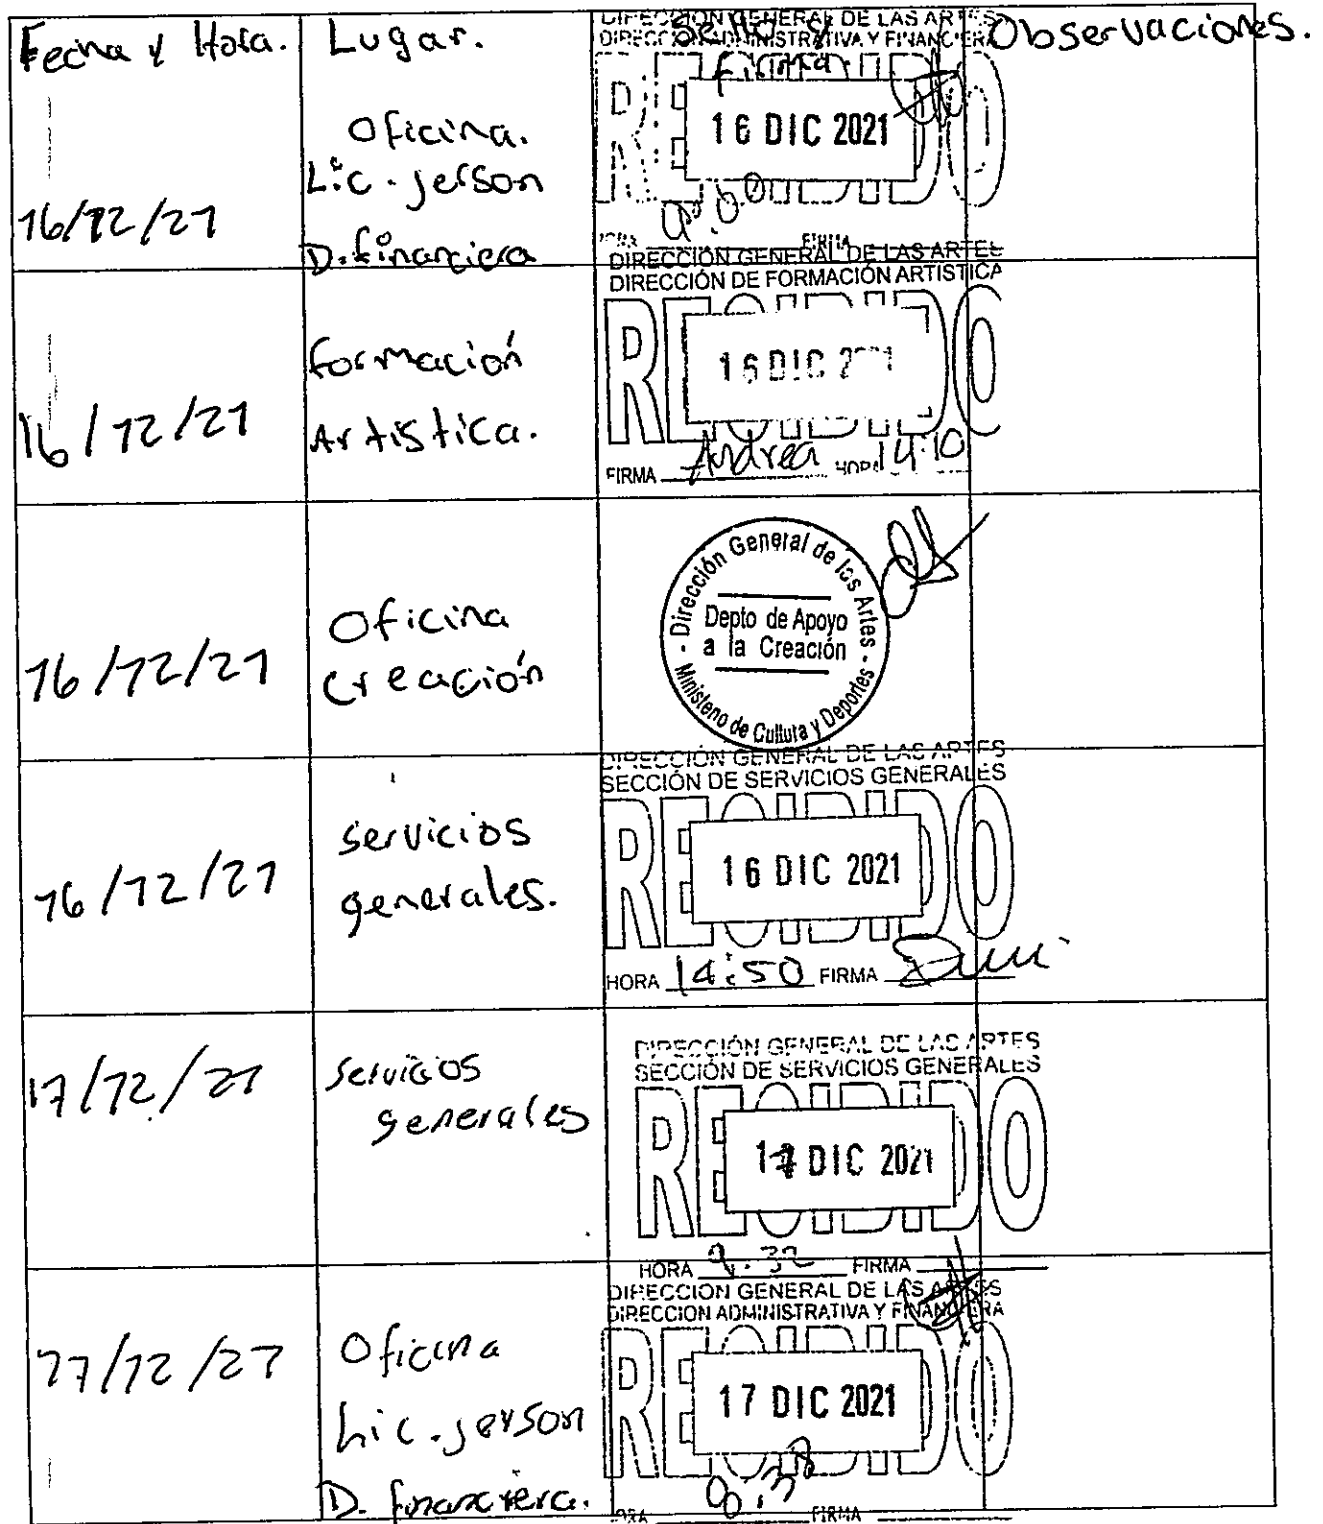 Fecha y Hora.
Lugar.
Sello y
firma.
Observaciones.
16/12/21
Oficina.
Lic. jerson
D. financiera
DIRECCIÓN GENERAL DE LAS ARTES
DIRECCIÓN ADMINISTRATIVA Y FINANCIERA
RECIBIDO
16 DIC 2021
FIRMA
16/12/21
formación
Artistica.
DIRECCIÓN GENERAL DE LAS ARTES
DIRECCIÓN DE FORMACIÓN ARTISTICA
RECIBIDO
16 DIC 2021
FIRMA Andrea HORA 14:10
16/12/21
Oficina
creación
Dirección General de las Artes
Depto de Apoyo
a la Creación
Ministerio de Cultura y Deportes
16/12/21
servicios
generales.
DIRECCIÓN GENERAL DE LAS ARTES
SECCIÓN DE SERVICIOS GENERALES
RECIBIDO
16 DIC 2021
HORA 14:50 FIRMA
17/12/21
servicios
generales
DIRECCIÓN GENERAL DE LAS ARTES
SECCIÓN DE SERVICIOS GENERALES
RECIBIDO
17 DIC 2021
HORA 9:32 FIRMA
17/12/21
Oficina
Lic. jerson
D. financiera.
DIRECCION GENERAL DE LAS ARTES
DIRECCION ADMINISTRATIVA Y FINANCIERA
RECIBIDO
17 DIC 2021
9:38
HORA FIRMA